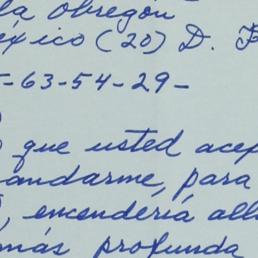 la Obregón
éxico (20) D. F
-63-54-29-
que usted acep
andarme, para
, encendería all
más profunda